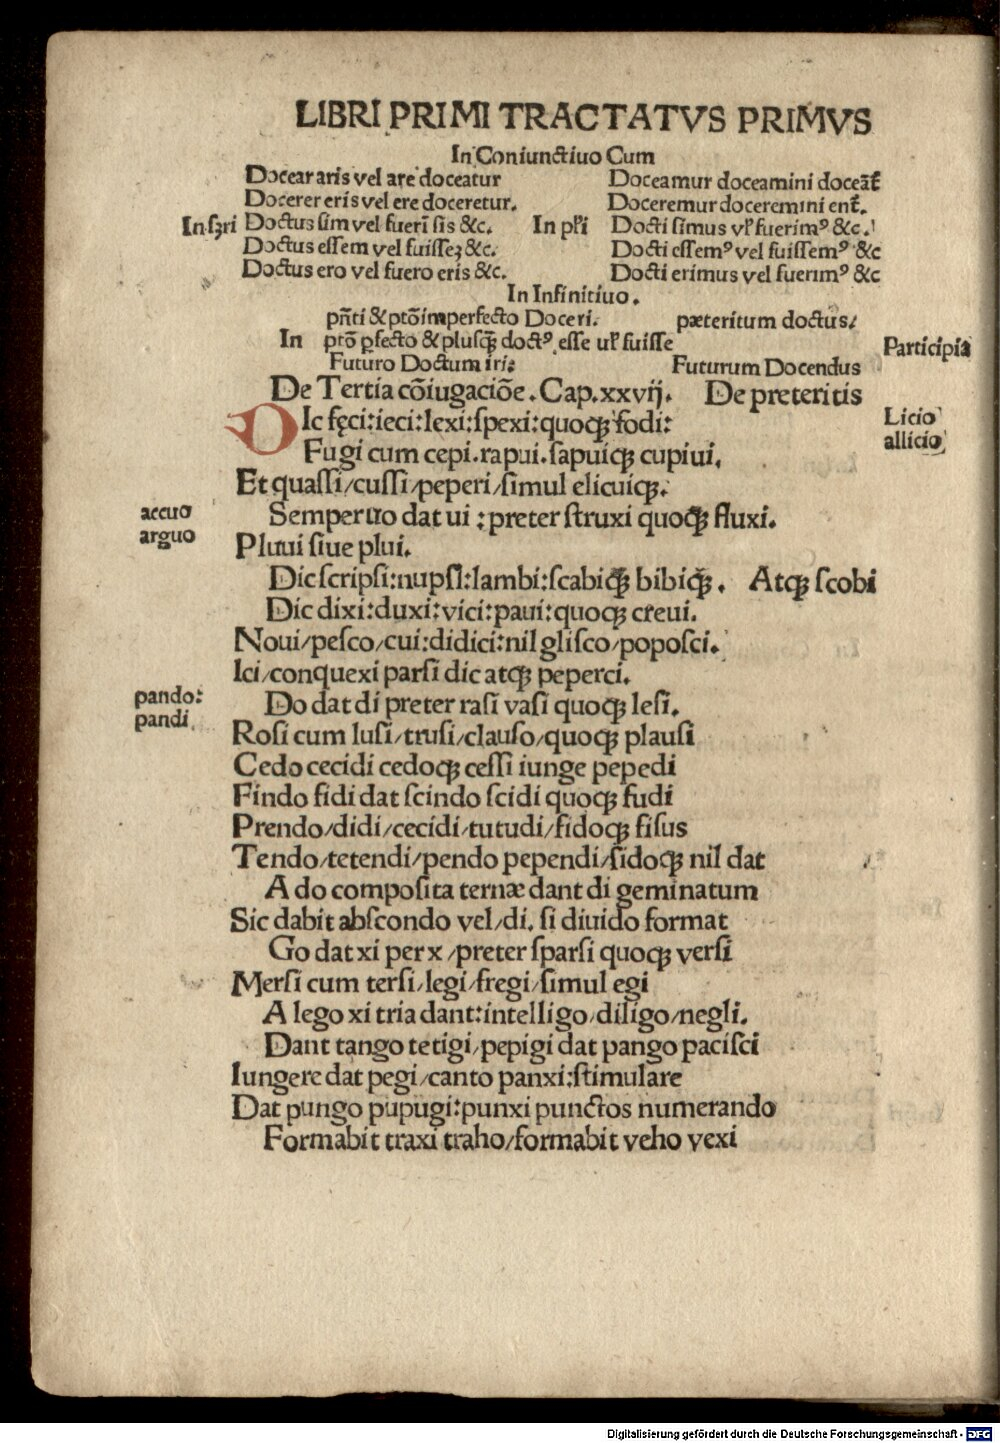 LIBRI PRIMI TRACTATVS PRIMVS
In Coniunctiuo Cum
Docear aris vel are doceatur Doceamur doceamini doceãt᷑
Docerer eris vel ere doceretur. Doceremur doceremini ent᷑.
In sꝫri Doctus sim vel fueri᷑ sis &c. In pľi Docti simus vľ fuerimꝰ &c.
Doctus essem vel fuisseꝫ &c. Docti essemꝰ vel fuissemꝰ &c
Doctus ero vel fuero eris &c. Docti erimus vel fuerimꝰ &c
In Infinitiuo.
pñti & ptõ imperfecto Doceri. pæteritum doctus/
In ptõ ꝑfecto & plusqꝫ doctꝰ esse uľ fuisse Participia
Futuro Doctum iri: Futurum Docendus
De Tertia cõiugaciõe. Cap. xxvij. De preteritis
DIc fęci: ieci: lexi: spexi: quoqꝫ fodi: Licio
Fugi cum cepi. rapui. sapuiqꝫ cupiui. allicio
Et quassi/cussi/peperi/simul elicuiqꝫ.
accuo Semper uo dat ui : preter struxi quoqꝫ fluxi.
arguo
Pluui siue plui.
Dic scripsi: nupsi: lambi: scabiqꝫ bibiqꝫ. Atqꝫ scobi
Dic dixi: duxi: vici: paui: quoqꝫ creui.
Noui/pesco/cui: didici: nil glisco/poposci.
Ici/conquexi parsi dic atqꝫ peperci.
pando: Do dat di preter rasi vasi quoqꝫ lesi.
pandi
Rosi cum lusi/trusi/clauso/quoqꝫ plausi
Cedo cecidi cedoqꝫ cessi iunge pepedi
Findo fidi dat scindo scidi quoqꝫ fudi
Prendo/didi/cecidi/tutudi/fidoqꝫ fisus
Tendo/tetendi/pendo pependi/sidoqꝫ nil dat
A do composita ternæ dant di geminatum
Sic dabit abscondo vel/di. si diuido format
Go dat xi per x/preter sparsi quoqꝫ versi
Mersi cum tersi/legi/fregi/simul egi
A lego xi tria dant: intelligo/diligo/negli.
Dant tango tetigi/pepigi dat pango pacisci
Iungere dat pegi/canto panxi: stimulare
Dat pungo pupugi: punxi punctos numerando
Formabit traxi traho/formabit veho vexi
Digitalisierung gefördert durch die Deutsche Forschungsgemeinschaft - DFG